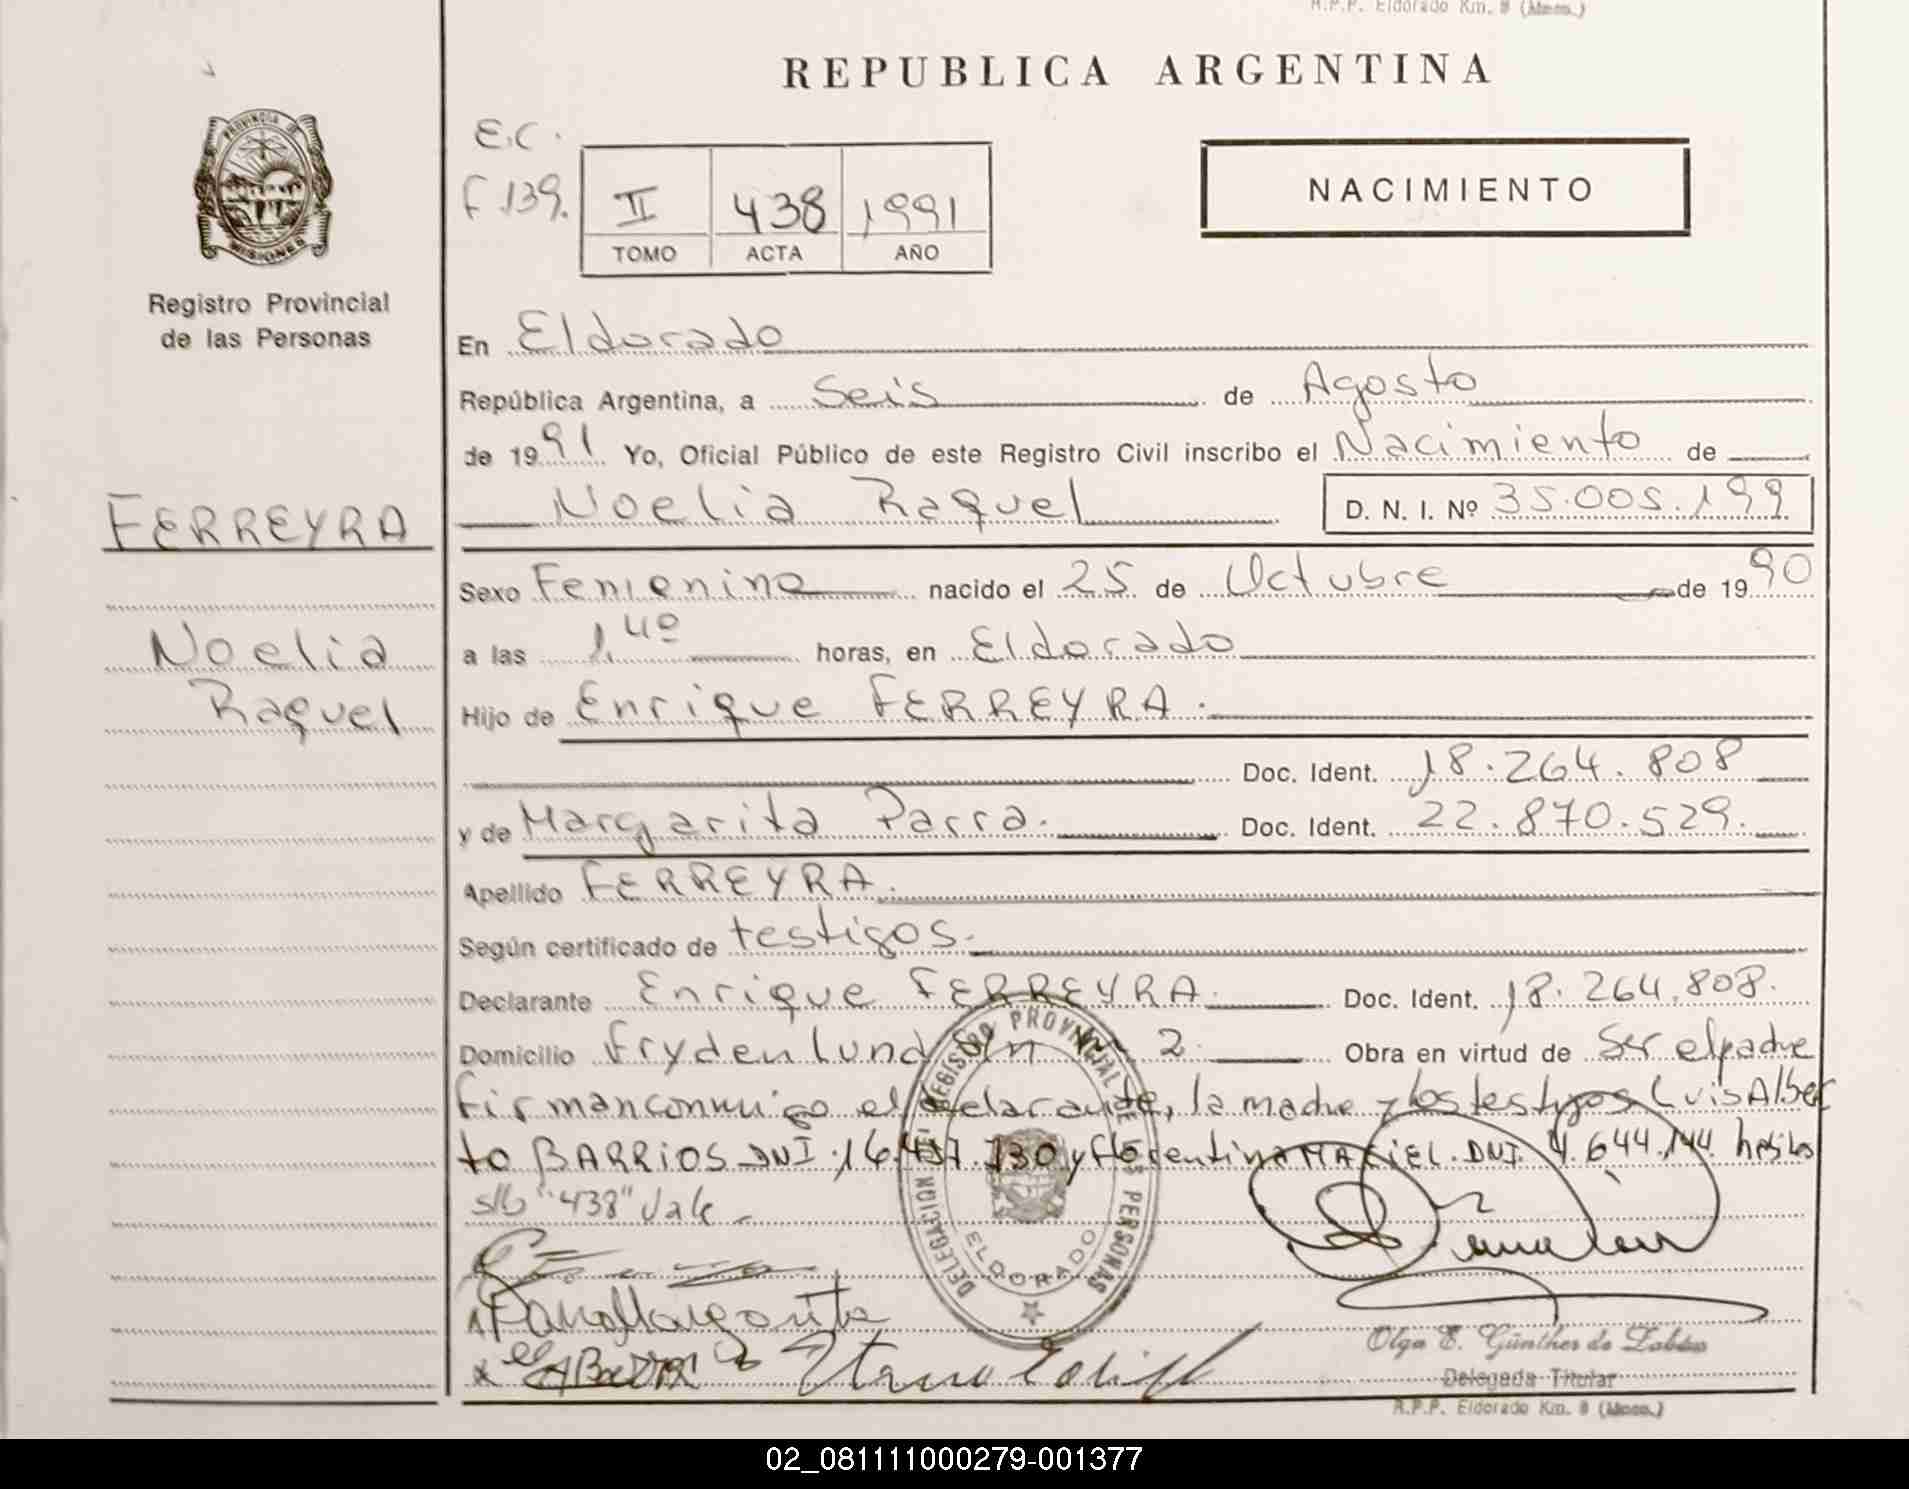 R.P.P. Eldorado Km. 8 (Mnes.)
REPUBLICA ARGENTINA
E.C.
F 139.
II 438 1991
TOMO ACTA AÑO
NACIMIENTO
PROVINCIA DE
MISIONES
Registro Provincial
de las Personas
En Eldorado
República Argentina, a Seis de Agosto
de 1991 Yo, Oficial Público de este Registro Civil inscribo el Nacimiento de
Noelia Raquel D. N. I. Nº 35.005.199
FERREYRA
Noelia
Raquel
Sexo Femenino nacido el 25 de Octubre de 1990
a las 1,40 horas, en Eldorado
Hijo de Enrique FERREYRA.
Doc. Ident. 18.264.808
y de Margarita Parra. Doc. Ident. 22.870.529.
Apellido FERREYRA.
Según certificado de testigos.
Declarante Enrique FERREYRA. Doc. Ident. 18.264.808.
Domicilio Frydenlund s/n Km 2. Obra en virtud de Ser el padre
firman conmigo el declarante, la madre y los testigos Luis Alber
to BARRIOS DNI. 16.437.730 y Florentina MARIEL. DNI. 4.644.144.
s/b "438" Vale
DELEGACION REGISTRO PROVINCIAL DE LAS PERSONAS
ELDORADO
Parra Margarita
Olga E. Günther de
Delegada Titular
R.P.P. Eldorado Km. 8 (Mnes.)
02_081111000279-001377